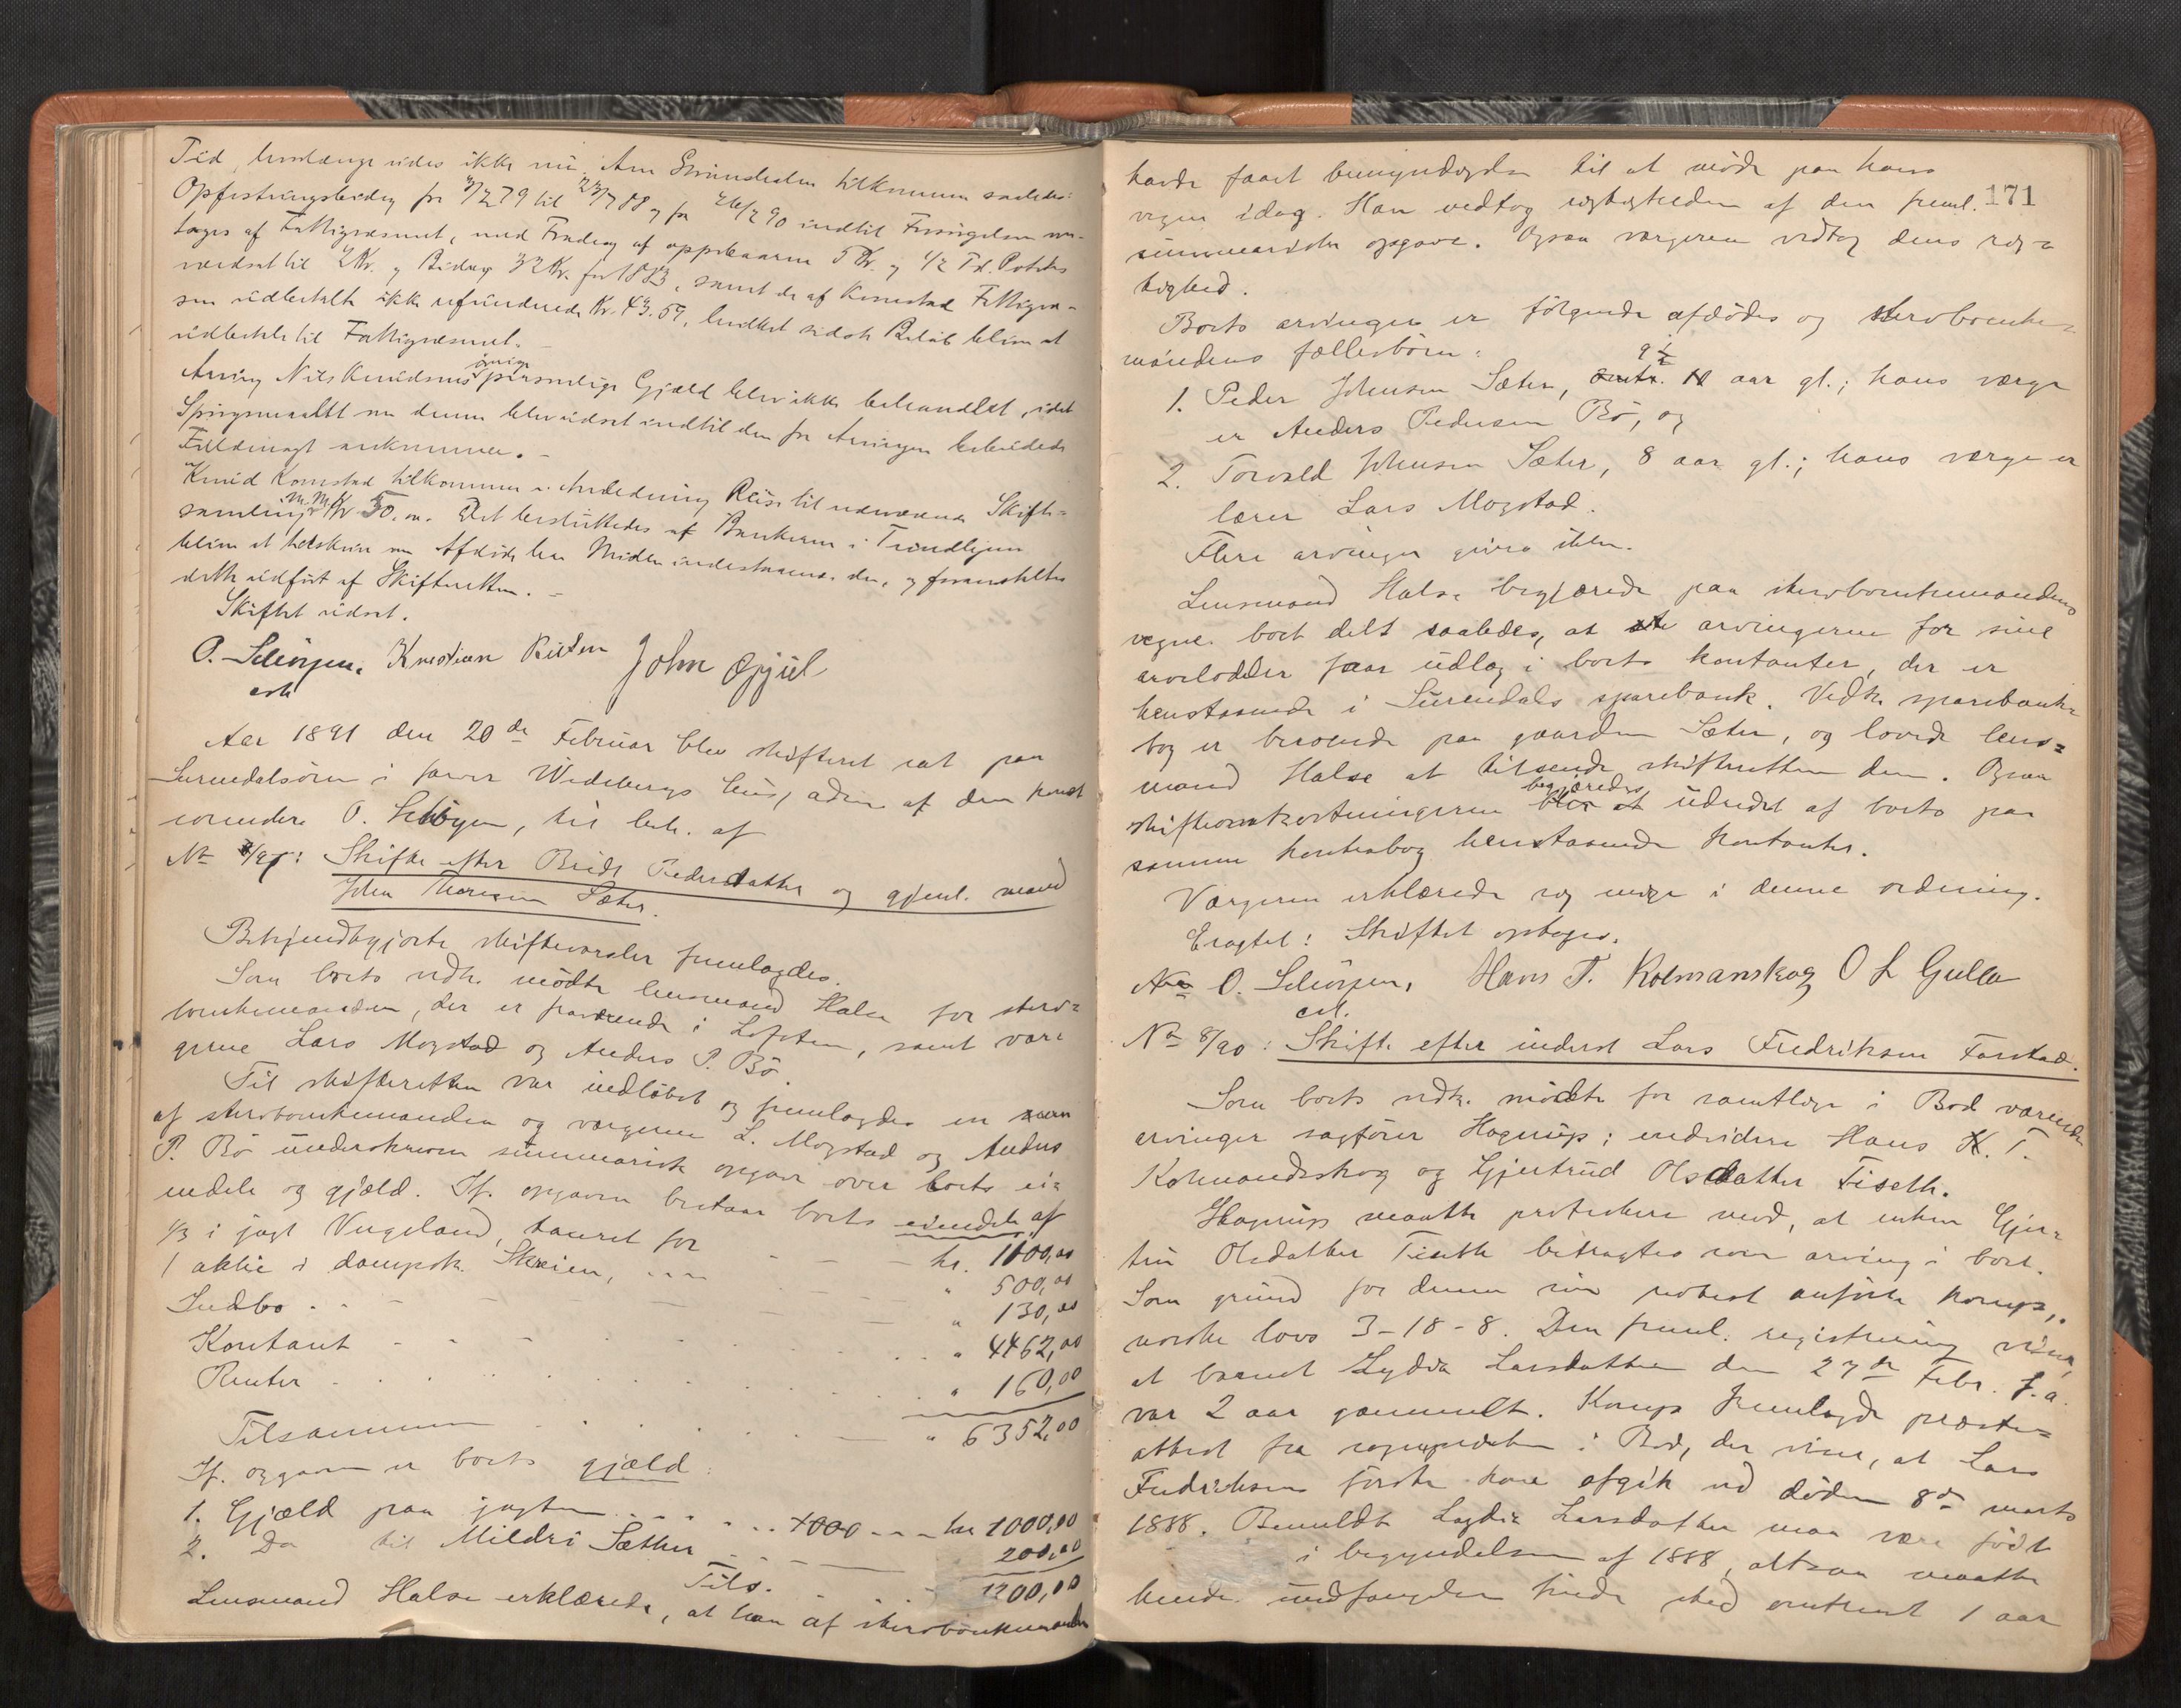 Tid, hvorlænge vides ikke nu. Ane Svinsdalen tilkommer saaledes:
Opfostringsbidrag fra 3/7 79 til 23/7 88 og fra 26/2 90 indtil
tages af Fattigvæsenet, med Fradrag af oppebaarne 5 Kr. og 1/2 Td. Potetes
værdsat til 2 Kr. og Bidrag 32 Kr. for 1883, samt de af Kornstad Fattigvæ-
sen udbetalte ikke refunderede Kr. 43.59, hvilket sidste Beløb bliver at
udbetale til Fattigvæsenet. –
Arving Nils Knudsens øvrige personlige Gjæld blev ikke behandlet, idet
Spørgsmaalet om denne blev udsat indtil den fra Arvingen bebudede
Fuldmagt ankommer. –
Knud Kornstad tilkommer i Anledning Reise til nærværende Skifte-
samling m. M. Kr 50.00. Det besluttedes at Bankerne i Trondhjem
bliver at tilskrive om Afdøde har Midler indestaaende der, og foranstaltes
dette udført af Skifteretten. –
Skiftet udsat.
O. Schiørn. Kristian John Gjul
cst
Aar 1891 den 20de Februar blev skifteret sat paa
Surendalsøren i Wedebergs hus, adm. af den konst
sorenskr. O. , til beh. af
No /90: Skifte efter Brit Pedersdatter og gjenl. mand
John Sæter.
Bekjendtgjorte skiftevarsler fremlagdes.
Som boets vedk. mødte lensmand Halse for sterv-
boenkemanden, der er fraværende i Lofoten, samt vær-
gerne Lars Mogstad og Anders P. Bø.
Til skifteretten var indløbet og fremlagdes en
af stervboenkemanden og værgerne L. Mogstad og Anders
P. Bø underskreven summarisk opgave over boets ei-
endele og gjæld. If. opgaven bestaar boets eiendele af
1/3 i jagt Vugeland, taxeret for – – kr. 1100,00
1 aktie i dampsk. Skreien, .... " 500,00
Indbo . . – – – " 130,00
Kontant – – – . . . " 4462,00
Renter . . . . . " 160,00
Tilsammen – . . . — " 6352,00
If. opgaven er boets gjæld:
1. Gjæld paa jagten . . . . . . 1000 - - - kr 1000,00
2. Do til Mildri Sæther . . — 200,00
Tils. – 1200,00
Lensmand Halse erklærede, at han af stervboenkemanden
171
havde faaet bemyndigelse til at møde paa hans
vegne idag. Han vedtog rigtigheden af den freml.
summariske opgave. Ogsaa værgerne vedtog dens rig-
tighed.
Boets arvinger er følgende afdødes og stervboenke-
mandens fællesbørn:
1. Peder Johnsen Sæter, omtr. 9 1/2 aar gl.; hans værge
er Anders Pedersen Bø, og
2. Torvald Johnsen Sæter, 8 aar gl.; hans værge er
lærer Lars Mogstad.
Flere arvinger gives ikke.
Lensmand Halse begjærede paa stervboenkemandens
vegne boet delt saaledes, at arvingerne for sine
arvelodder faar udlæg i boets kontanter, der er
henstaaende i Surendals sparebank. Vedk. sparebank-
bog er beroende paa gaarden Sæter, og lovede lens-
mand Halse at tilsende skifteretten den. Ogsaa
skifteomkostningerne begjæredes udredet af boets paa
samme kontrabog henstaaende kontanter.
Værgerne erklærede sig enige i denne ordning.
Eragtet: Skiftet optages.
O. Schiørn, Hans T. Kolmanskog O L Gulla
cst.
No 8/90: Skifte efter inderst Lars Fredriksen Farstad.
Som boets vedk. mødte for samtlige i Bod værende
arvinger sagfører Hagerup; endvidere Hans T.
Kolmandskog og Gjertrud Olsdatter Tiseth.
Hagerup maatte protestere mod, at enken Gjer-
tru Olsdatter Tiseth betragtes som arving i boet.
Som grund for denne sin protest anførte komp.,
norske lovs 3-18-8. Den freml. registrering viser,
at barnet Lydia Larsdatter den 27de Febr. f.a.
var 2 aar gammelt. Komp. fremlagde præste-
attest fra sognepræsten i Bod, der viser, at Lars
Fredriksens første kone afgik ved døden 8de marts
1888. Bemeldte Lydia Larsdatter maa være født
i begyndelsen af 1888, altsaa maatte
hendes undfangelse finde sted omtrent 1 aar